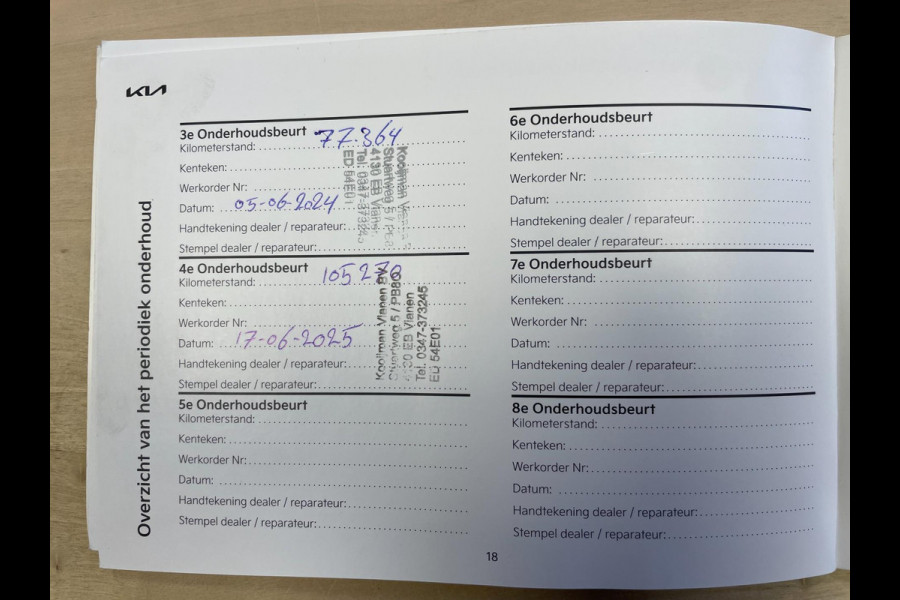 KIA
Overzicht van het periodiek onderhoud
3e Onderhoudsbeurt
Kilometerstand: 77.364
Kenteken:
Werkorder Nr:
Datum: 05-06-2024
Handtekening dealer / reparateur:
Stempel dealer / reparateur:
Kooijman Vianen
Stuartweg 5 /
4130 EB Vianen
Tel. 0347-373245
ED 54E01
4e Onderhoudsbeurt
Kilometerstand: 105270
Kenteken:
Werkorder Nr:
Datum: 17-06-2025
Handtekening dealer / reparateur:
Stempel dealer / reparateur:
Kooijman Vianen BV
Stuartweg 5 / PB80
4130 EB Vianen
Tel. 0347-373245
54E01
5e Onderhoudsbeurt
Kilometerstand:
Kenteken:
Werkorder Nr:
Datum:
Handtekening dealer / reparateur:
Stempel dealer / reparateur:
6e Onderhoudsbeurt
Kilometerstand:
Kenteken:
Werkorder Nr:
Datum:
Handtekening dealer / reparateur:
Stempel dealer / reparateur:
7e Onderhoudsbeurt
Kilometerstand:
Kenteken:
Werkorder Nr:
Datum:
Handtekening dealer / reparateur:
Stempel dealer / reparateur:
8e Onderhoudsbeurt
Kilometerstand:
Kenteken:
Werkorder Nr:
Datum:
Handtekening dealer / reparateur:
Stempel dealer / reparateur:
18